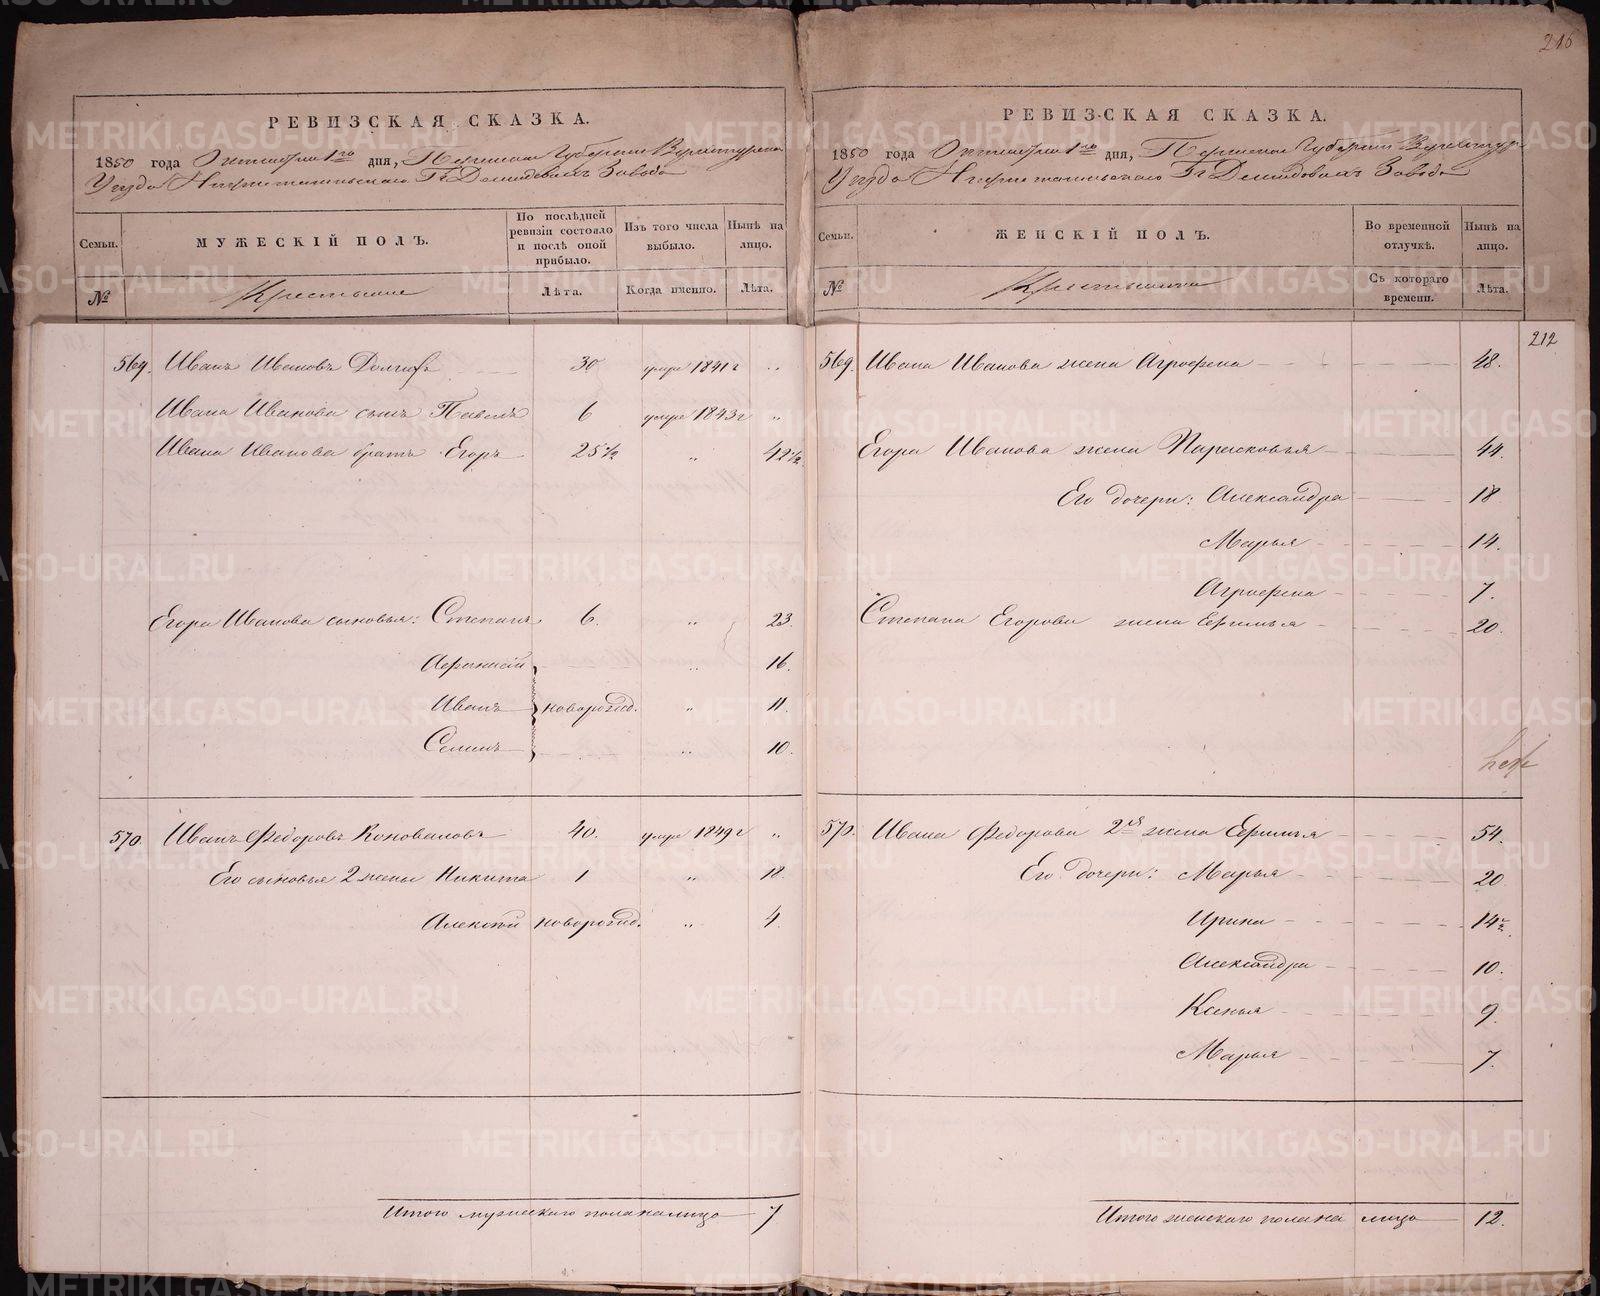 216
РЕВИЗСКАЯ СКАЗКА.
1850 года Октября 1го дня, Пермской Губернии Верхотурскаго
Уезда Нижнетагильскаго Гг Демидовыхъ Завода
Семьи.
МУЖЕСКІЙ ПОЛЪ.
По послѣдней ревизіи состояло и послѣ оной прибыло.
Изъ того числа выбыло.
Нынѣ на лицо.
№
Крестьяне
Лѣта.
Когда именно.
Лѣта.
569. Иванъ Ивановъ Долговъ 30 умре 1841 г „
Ивана Иванова сынъ Павелъ 6 умре 1843 г „
Ивана Иванова братъ Егоръ 25 1/2 „ 42 1/2
Егора Иванова сыновья: Степанъ 6. „ 23.
Афанасій „ 16.
Иванъ новорожд. „ 11.
Семенъ „ 10.
570. Иванъ Федоровъ Коноваловъ 40. умре 1849 г „
Его сыновья 2 жены Никита 1 „ 18.
Алексѣй новорожд. „ 4.
Итого мужескаго пола налицо 7
РЕВИЗСКАЯ СКАЗКА.
1850 года Октября 1го дня, Пермской Губерніи Верхотур
Уезда Нижнетагильскаго Гг Демидовыхъ Завода
Семьи.
ЖЕНСКІЙ ПОЛЪ.
Во временной отлучкѣ.
Нынѣ на лицо.
№
Крестьянки
Съ котораго времени.
Лѣта.
212
569. Ивана Иванова жена Агрофена 48.
Егора Иванова жена Парасковья 44.
Его дочери: Александра 18
Марья 14.
Агрофена 7.
Степана Егорова жена Ефимья 20.
570. Ивана Федорова 2я жена Ефимья 54.
Его дочери: Марья 20
Ирина 14 1/2
Александра 10.
Ксенья 9.
Марья 7.
Итого женскаго пола на лицо 12.
METRIKI.GASO-URAL.RU